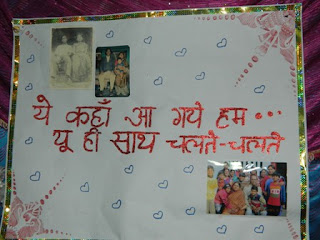 ये कहाँ आ गये हम...
यू ही साथ चलते-चलते